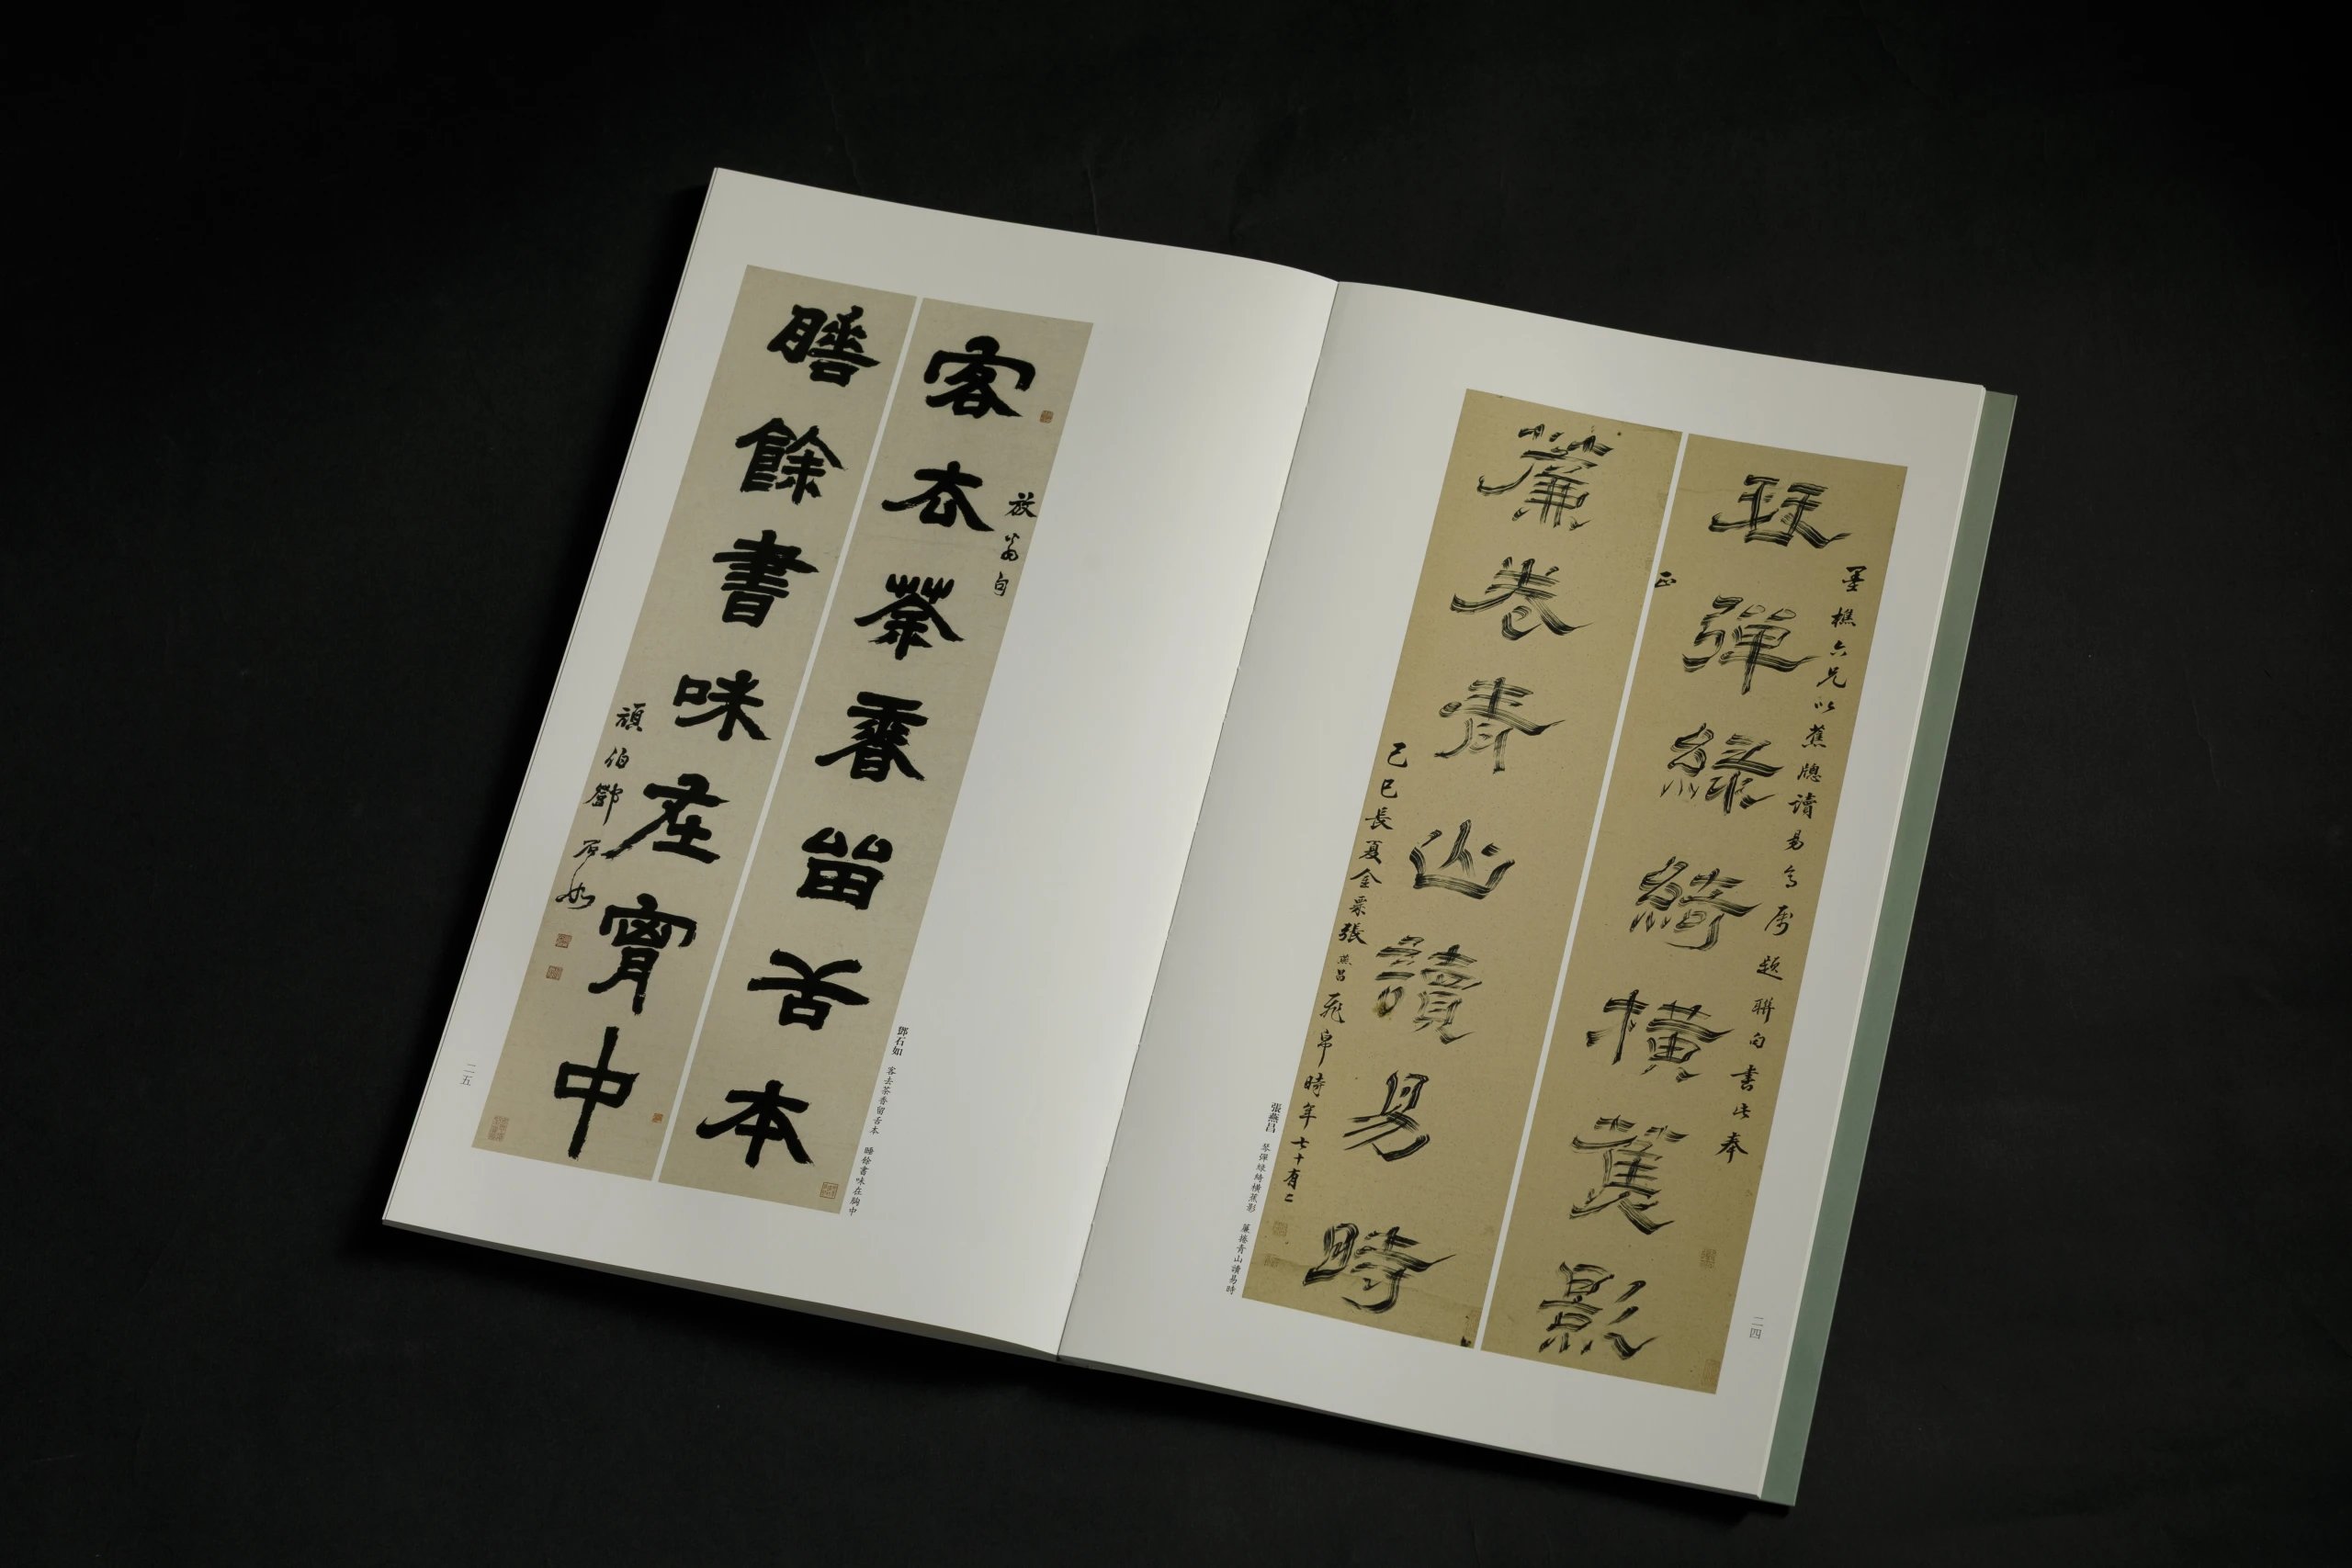 琴彈綠綺橫蕉影
墨樵六兄以蕉牕讀易啚属題聯句書此奉
正
簾卷青山讀易時
己巳長夏金粟張燕昌飛帛時年七十有二
張燕昌 琴彈綠綺橫蕉影 簾捲青山讀易時
二四
客去茶香留舌本
放翁句
睡餘書味在胷中
頑伯鄧石如
鄧石如 客去茶香留舌本 睡餘書味在胸中
二五